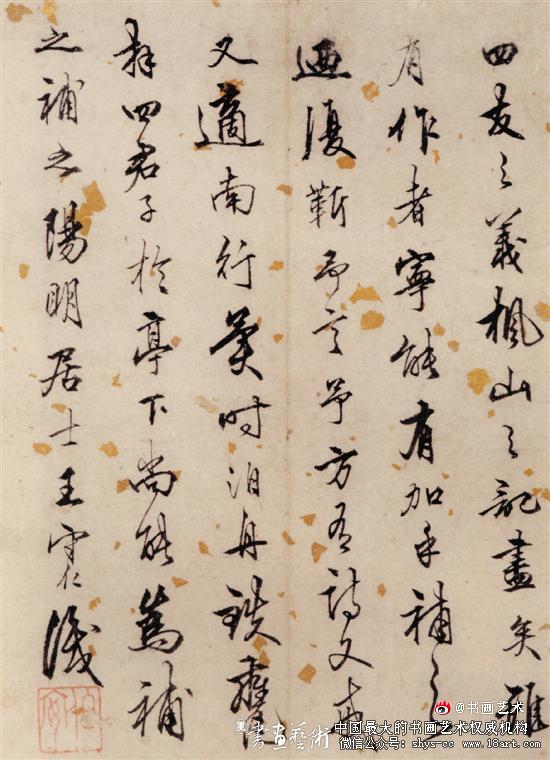 四友之義楓山之記盡矣雖
有作者寧能有加乎補之
復靳予言予方有詩文戒
又適南行異時泊舟鐵甕
拜四君子於亭下尚能為補
之補之陽明居士王守仁識
@书画艺术
書畫藝術
中国最大的书画艺术权威机构
微信公众号: shys-cc www.18art.com